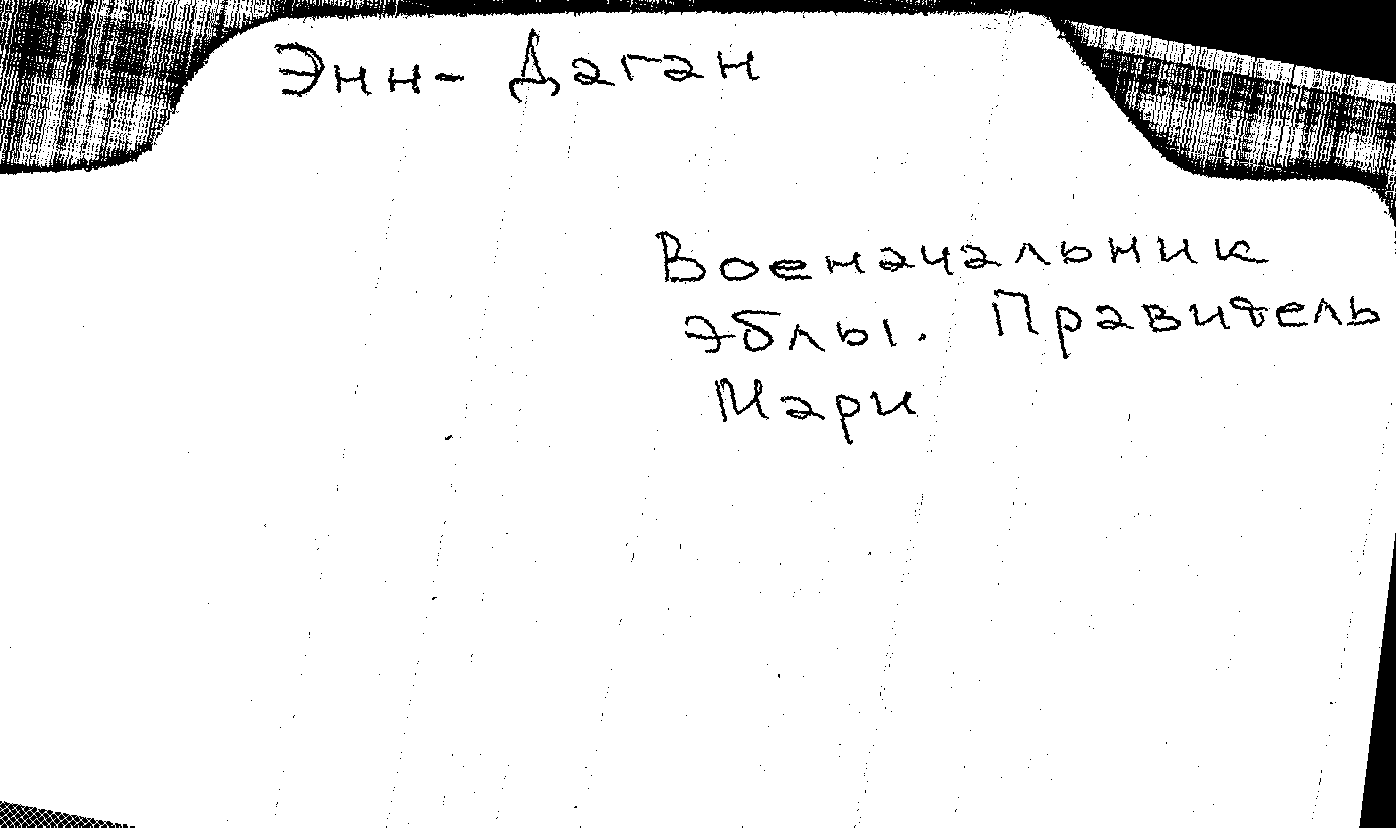 Энн-Даган
Военачальник
Эблы. Правитель
Мари